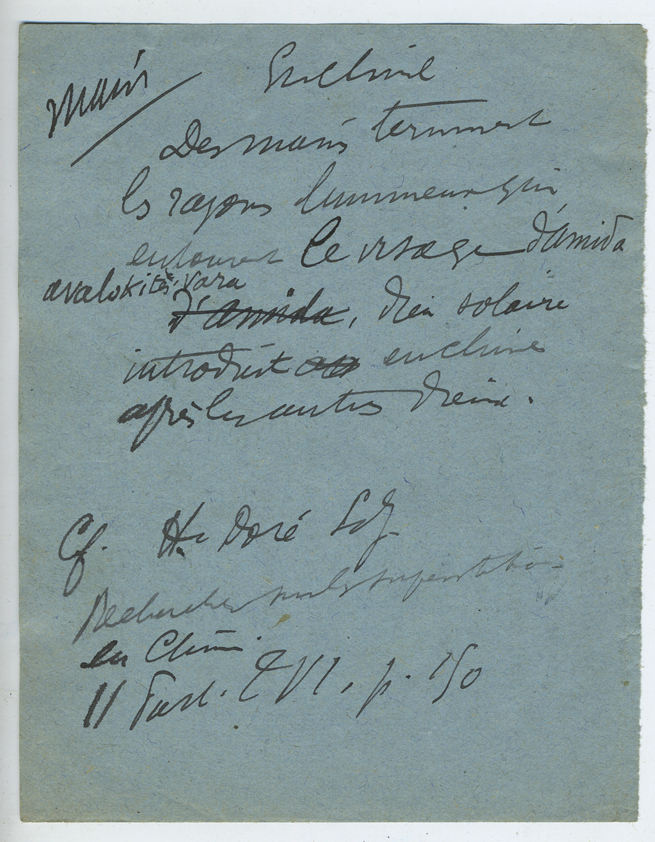 Mains
En Chine
Des mains terminent
les rayons lumineux qui
entourent le visage d'Amida
avalokitésvara
d'Amida, dieu solaire
introduit en Chine
après les autres dieux.
Cf. H. Doré S.J.
Recherches sur les superstitions
en Chine.
II Part. T VI, p. 150